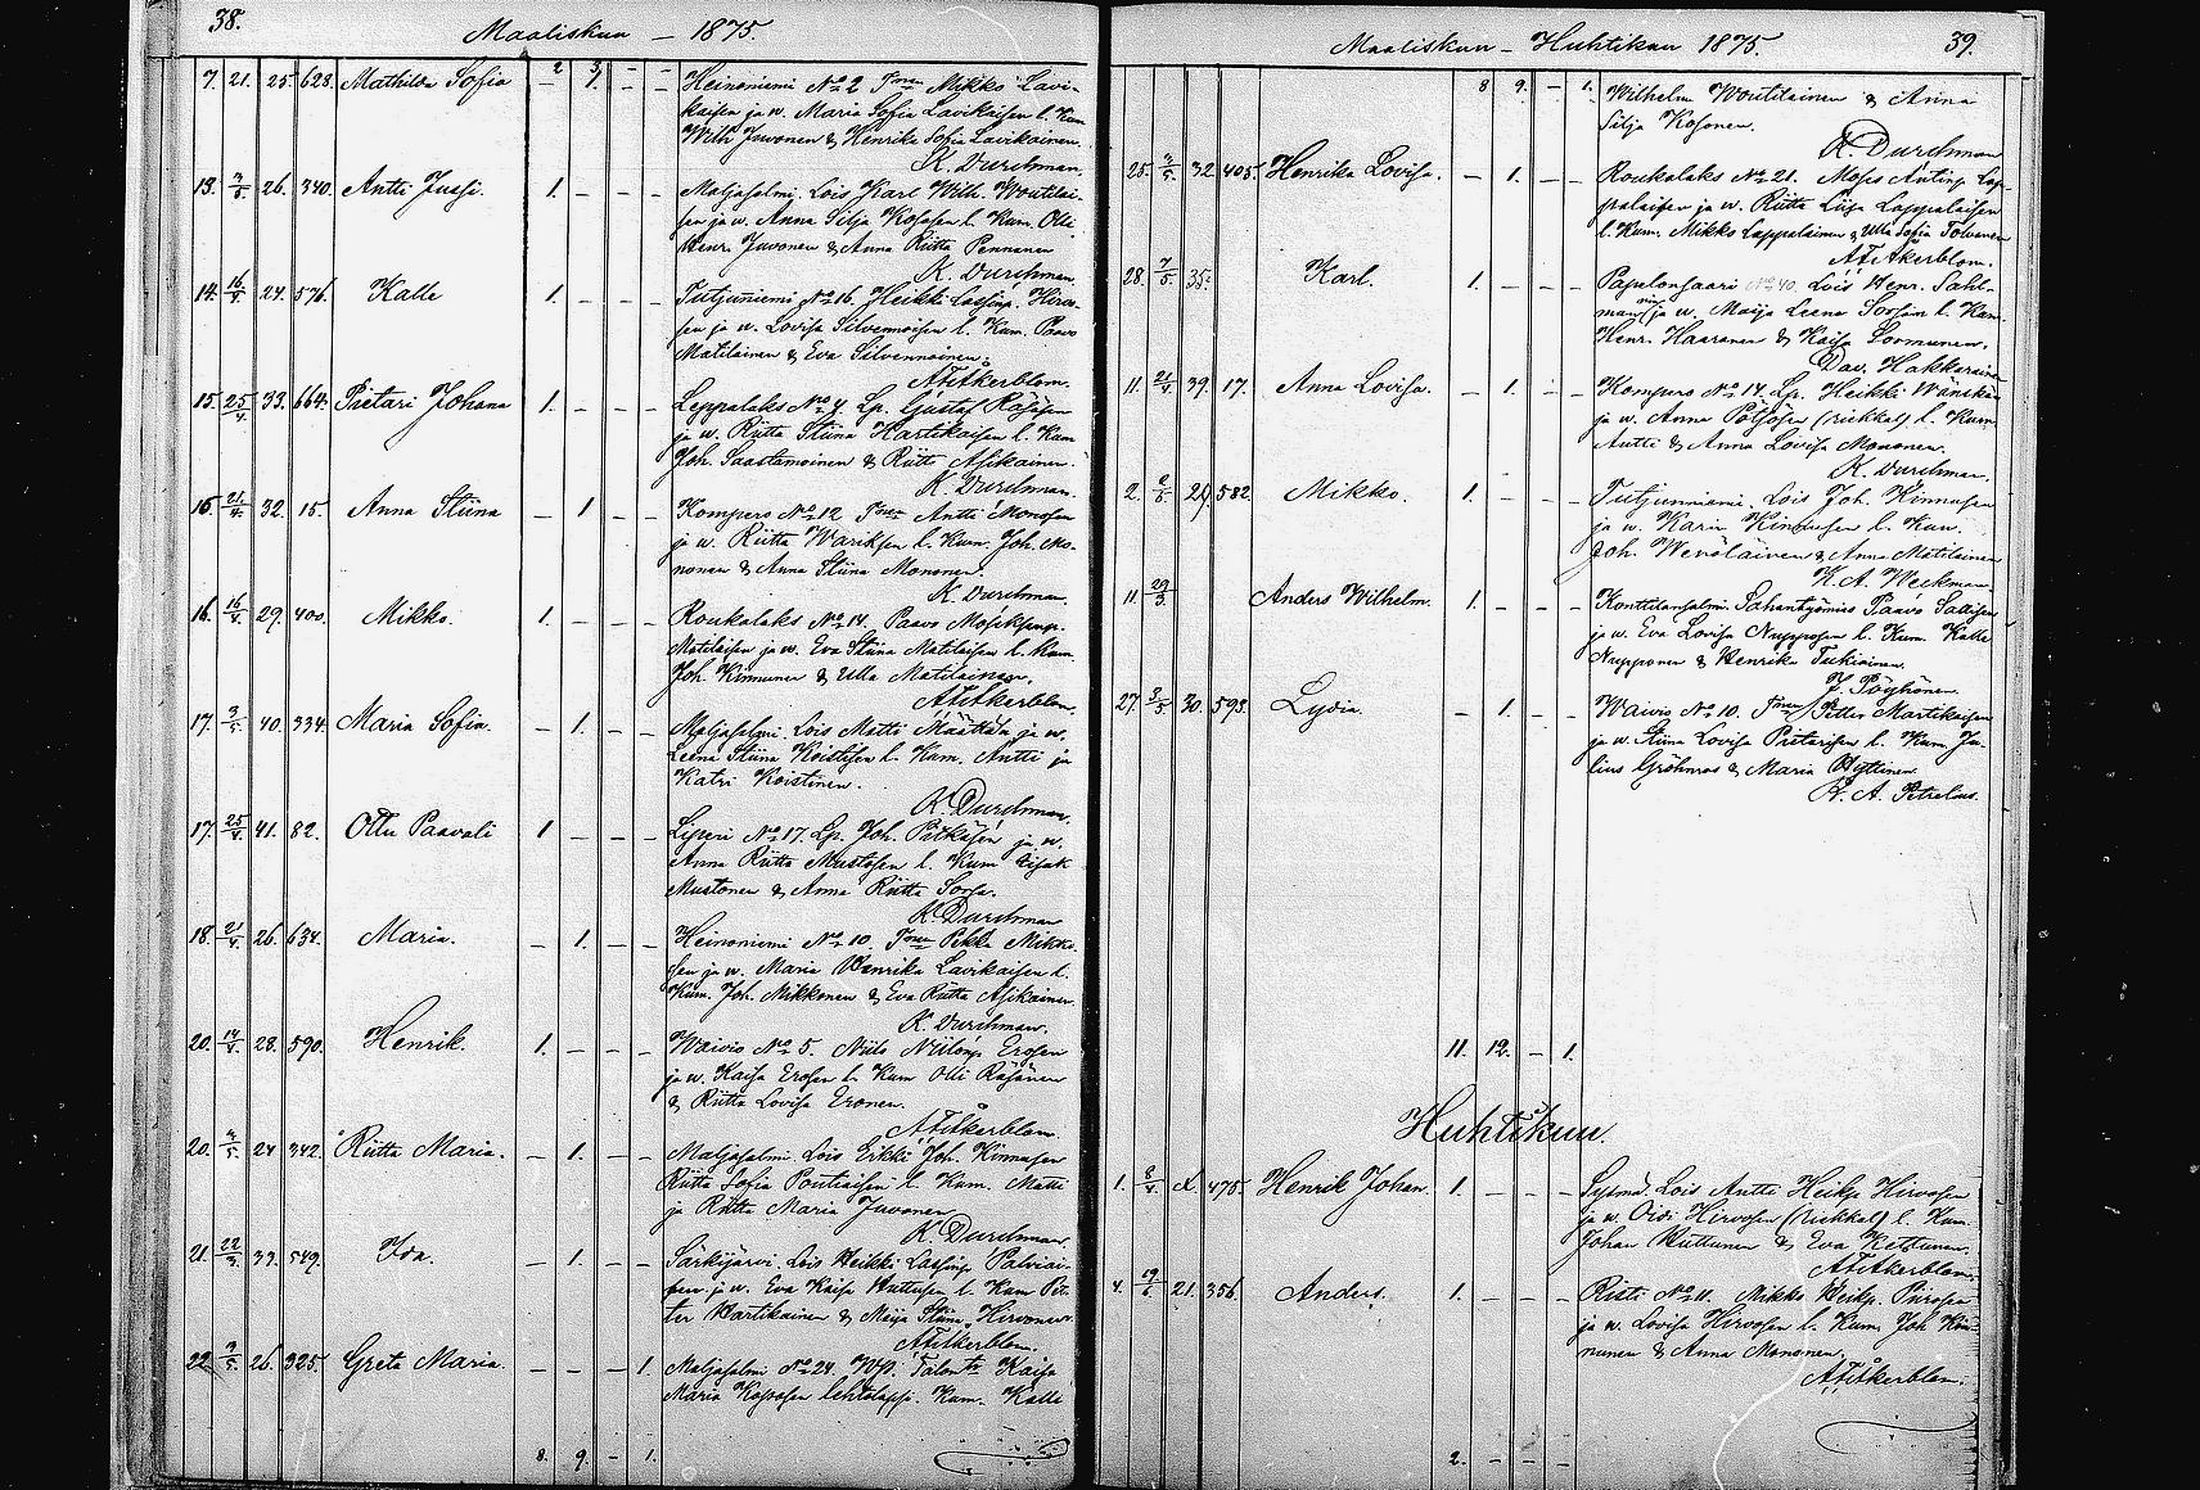 38.
Maaliskuu — 1875.
2 3 - -
7. 21. 25. 628. Mathilda Sofia — 1. — — Heinoniemi No 2 Tmen Mikko Lavi-
kaisen ja w. Maria Sofia Lavikaisen l. Kum
Wilh Juvonen & Henrika Sofia Lavikainen.
K. Durchman.
13. 26. 340. Antti Jussi. 1. — — — Maljasalmi. Lois Karl Wilh. Woutilai-
sen ja w. Anna Silja Kososen l. Kum. Olli
Henr. Juvonen & Anna Riitta Pennanen
K. Durchman.
14. 16/4 24. 576. Kalle 1. — — — Tutjunniemi No 16. Heikki Lassinp. Hirvo-
sen ja w. Lovisa Silvennoisen l. Kum. Paavo
Matilainen & Eva Silvennoinen.
Åkerblom.
15. 25/4 33. 664. Pietari Johana 1. — — — Leppalaks No 4. Lp. Gustaf Räsäsen
ja w. Riitta Stiina Hartikaisen l. Kum
Joh. Saastamoinen & Riitta Asikainen.
K. Durchman.
16. 21/4 32. 15. Anna Stiina — 1 — — Kompero No 12 Tmen Antti Monosen
ja w. Riitta Wariksen l. Kum. Joh. Mo-
nonen & Anna Stiina Mononen.
K. Durchman.
16. 16/4 29. 400. Mikko. 1. — — — Roukalaks No 14. Paavo
Matilaisen ja w. Eva Stiina Matilaisen l. Kum.
Joh. Kinnunen & Ulla Matilainen.
Åkerblom.
17. 3/5 40. 334. Maria Sofia. — 1. — — Maljasalmi. Lois Matti Määttän ja w.
Leena Stiina Koistisen l. Kum. Antti ja
Katri Koistinen.
K. Durchman.
17. 25/4 41. 82. Otto Paavali 1 — — — Liperi No 17. Lp. Joh. Pitkäsen ja w.
Anna Riitta Mustosen l. Kum
Mustonen & Anna Riitta Sorsa.
K. Durchman
18. 21/4 26. 634. Maria. — 1. — — Heinoniemi No 10. Tmen Pekka Mikko-
sen ja w. Maria Henrika Lavikaisen l.
Kum. Joh. Mikkonen & Eva Riitta Asikainen.
K. Durchman.
20. 14/4 28. 590. Henrik. 1. — — — Waivio No 5. Niilo Niilonp Erosen
ja w. Kaisa Erosen l. Kum Olli Räsänen
& Riitta Lovisa Eronen.
Åkerblom
20. 24 342. Riitta Maria. — 1. — — Maljasalmi. Lois Erkki Joh. Kinnusen
Riitta Sofia Pontiaisen l. Kum. Matti
ja Riitta Maria Juvonen
K. Durchman.
21. 22/3 33. 549. Ida. — 1. — — Särkijärvi. Lois Heikki Lassinp Palviai-
sen ja w. Eva Kaisa Huttusen l. Kum Pet-
ter Hartikainen & Maija Stiina Hirvonen.
Åkerblom.
22 26. 325. Greta Maria. — — — 1. Maljasalmi No 24. Kaisa
Maria Kososen lehtolapsi. Kum. Kalle
8. 9. - 1.
Maaliskuu — Huhtikuu 1875. 39.
8 9. — 1. Wilhelm Woutilainen & Anna
Silja Kosonen.
K. Durchman
25. 32 405. Henrika Lovisa. — 1. — — Roukalaks No 21. Moses Antinp Lap-
palaisen ja w. Riitta Liisa Lappalaisen
l. Kum. Mikko Lappalainen & Ulla Sofia Tolvanen
Åkerblom.
28. 7/5 35. Karl. 1. — — — Papelonsaari No 40. Lois Henr. Sahl-
man ja w. Maija Leena Sorsan l. Kum.
Henr. Haaranen & Kaisa Sormunen.
Dav. Hakkarainen
11. 21/4 39. 17. Anna Lovisa. — 1. — — Kompero No 14. Lp. Heikki Wänskän
ja w. Anna Pötsösen l. Kum
Antti & Anna Lovisa Mononen.
K. Durchman.
2. 582. Mikko. 1. — — — Tutjunniemi. Lois Joh. Kinnusen
ja w. Karin Kinnusen l. Kum.
Joh. Wenäläinen & Anna Matilainen
K. A. Weckman
11. 29/3. Anders Wilhelm. 1. — — — Konttilansalmi. Sahantyömies Paavo Sallisen
ja w. Eva Lovisa Nupposen l. Kum. Kalle
Nupponen & Henrika Tukiainen.
J. Pöyhönen.
27. 3/5. 30. 593. Lydia. — 1. — — Waivio No 10. Tmen Petter Martikaisen
ja w. Stiina Lovisa Pietarisen l. Kum. Ju-
lius Gröhnroos & Maria Hyttinen.
K. A. Petrelius.
11. 12. — 1.
Huhtikuu.
1. 8/4. 475. Henrik Johan. 1. — — — Sysmä. Lois Antti Heikp Hirvosen
ja w. Oidi Hirvosen l. Kum.
Johan Huttunen & Eva Kettunen.
Åkerblom.
4. 19/6 21. 356. Anders. 1. — — — Risti No 11. Mikko Heikp. Piirosen
ja w. Lovisa Hirvosen l. Kum. Joh Kin-
nunen & Anna Mononen.
Åkerblom.
2. — — —